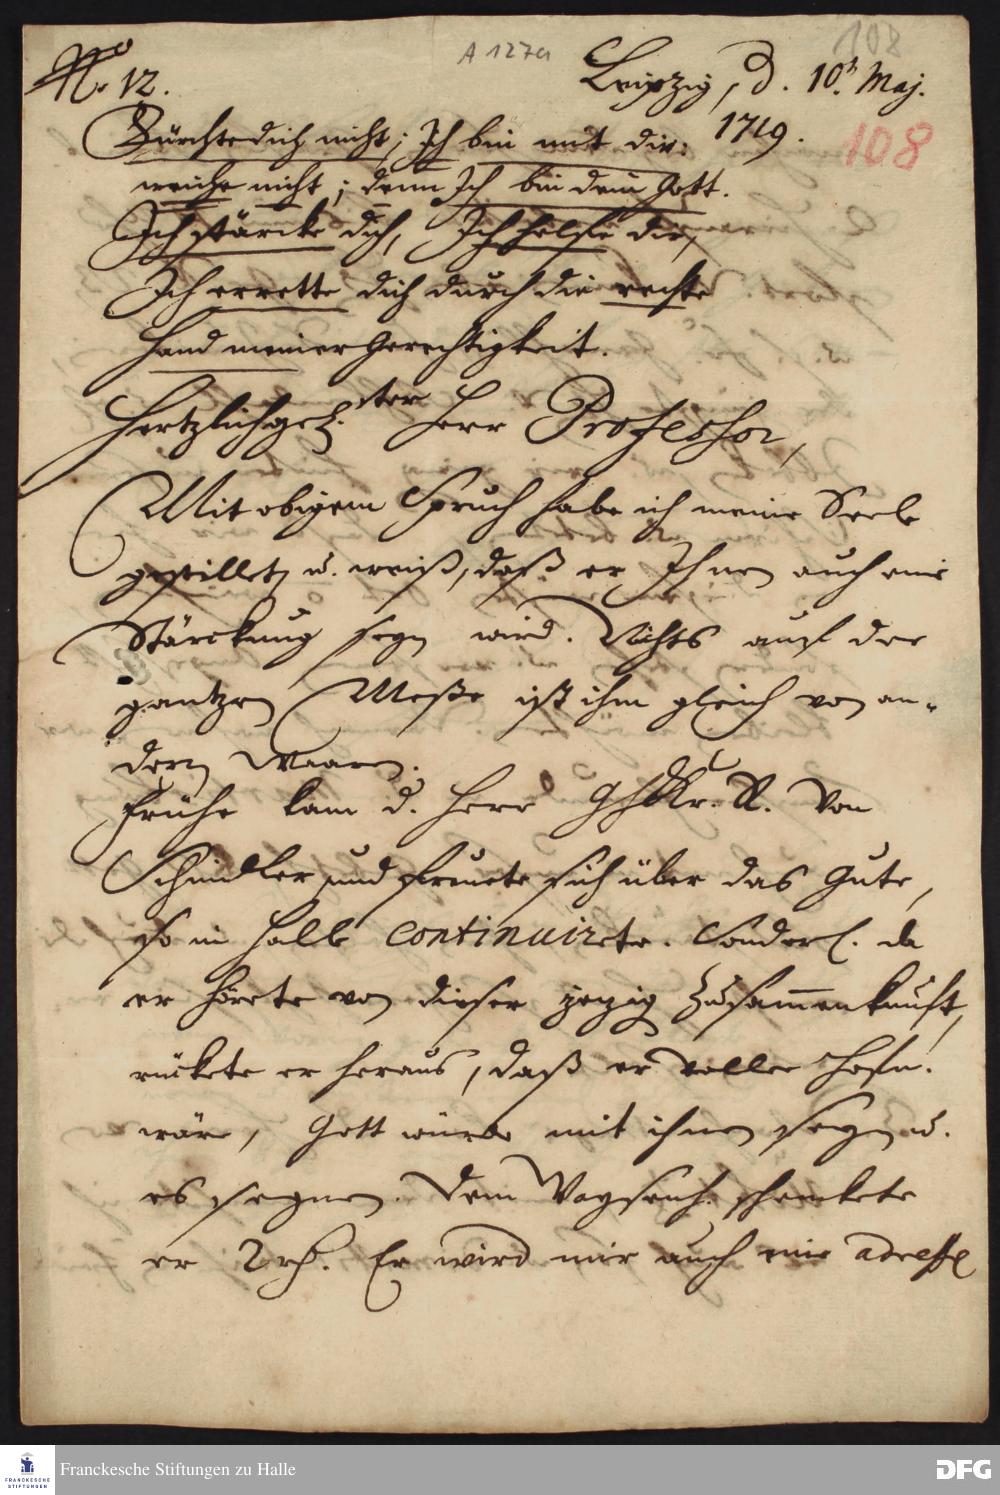 A 127a
108
No. 12.
Leipzig, d. 10t. Maj.
1719.
108
Fürchte dich nicht; Ich bin mit dir:
weiche nicht; denn Ich bin dein Gott.
Ich stärcke dich, Ich helffe dir,
Ich errette dich durch die rechte
Hand meiner Gerechtigkeit.
Hertzlichgel. ster Herr Professor,
Mit obigem Spruch habe ich meine Seele
gestillet, u. weiß, daß er Ihnen auch eine
Stärckung seyn wird. Nichts auf der
gantzen Meße ist ihm gleich von an-
dern Waaren.
Frühe kam d. Herr R. von
Schindler und freuete sich über das Gute,
so in Halle continuirete. Sonderl. da
er hörete von dieser Zusammenkunft,
rückete er heraus, daß er voller Hofn.
wäre, Gott würde mit ihnen seyn u.
es segnen. Dem Waysenh. schenckete
er 2 rh. Er wird mir auch eine adresse
Franckesche Stiftungen zu Halle
FRANCKESCHE
STIFTUNGEN
DFG